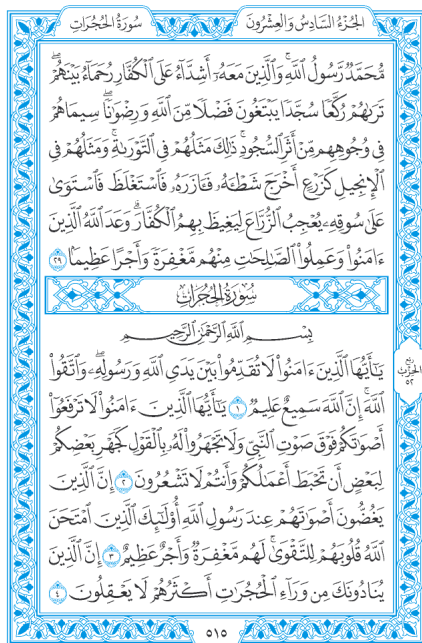 الجُزْءُ السَّادِسُ وَالعِشْرُونَ
سُورَةُ الحُجُرَاتِ
مُّحَمَّدٌ رَّسُولُ ٱللَّهِۚ وَٱلَّذِينَ مَعَهُۥٓ أَشِدَّآءُ عَلَى ٱلۡكُفَّارِ رُحَمَآءُ بَيۡنَهُمۡۖ
تَرَىٰهُمۡ رُكَّعٗا سُجَّدٗا يَبۡتَغُونَ فَضۡلٗا مِّنَ ٱللَّهِ وَرِضۡوَٰنٗاۖ سِيمَاهُمۡ
فِي وُجُوهِهِم مِّنۡ أَثَرِ ٱلسُّجُودِۚ ذَٰلِكَ مَثَلُهُمۡ فِي ٱلتَّوۡرَىٰةِۚ وَمَثَلُهُمۡ فِي
ٱلۡإِنجِيلِ كَزَرۡعٍ أَخۡرَجَ شَطۡـَٔهُۥ فَـَٔازَرَهُۥ فَٱسۡتَغۡلَظَ فَٱسۡتَوَىٰ
عَلَىٰ سُوقِهِۦ يُعۡجِبُ ٱلزُّرَّاعَ لِيَغِيظَ بِهِمُ ٱلۡكُفَّارَۗ وَعَدَ ٱللَّهُ ٱلَّذِينَ
ءَامَنُواْ وَعَمِلُواْ ٱلصَّٰلِحَٰتِ مِنۡهُم مَّغۡفِرَةٗ وَأَجۡرًا عَظِيمَۢا ٢٩
سُورَةُ الحُجُرَاتِ
بِسۡمِ ٱللَّهِ ٱلرَّحۡمَٰنِ ٱلرَّحِيمِ
يَٰٓأَيُّهَا ٱلَّذِينَ ءَامَنُواْ لَا تُقَدِّمُواْ بَيۡنَ يَدَيِ ٱللَّهِ وَرَسُولِهِۦۖ وَٱتَّقُواْ
ٱللَّهَۚ إِنَّ ٱللَّهَ سَمِيعٌ عَلِيمٞ ١ يَٰٓأَيُّهَا ٱلَّذِينَ ءَامَنُواْ لَا تَرۡفَعُوٓاْ
أَصۡوَٰتَكُمۡ فَوۡقَ صَوۡتِ ٱلنَّبِيِّ وَلَا تَجۡهَرُواْ لَهُۥ بِٱلۡقَوۡلِ كَجَهۡرِ بَعۡضِكُمۡ
لِبَعۡضٍ أَن تَحۡبَطَ أَعۡمَٰلُكُمۡ وَأَنتُمۡ لَا تَشۡعُرُونَ ٢ إِنَّ ٱلَّذِينَ
يَغُضُّونَ أَصۡوَٰتَهُمۡ عِندَ رَسُولِ ٱللَّهِ أُوْلَٰٓئِكَ ٱلَّذِينَ ٱمۡتَحَنَ
ٱللَّهُ قُلُوبَهُمۡ لِلتَّقۡوَىٰۚ لَهُم مَّغۡفِرَةٞ وَأَجۡرٌ عَظِيمٌ ٣ إِنَّ ٱلَّذِينَ
يُنَادُونَكَ مِن وَرَآءِ ٱلۡحُجُرَٰتِ أَكۡثَرُهُمۡ لَا يَعۡقِلُونَ ٤
ربع
الحزب
٥٢
٥١٥